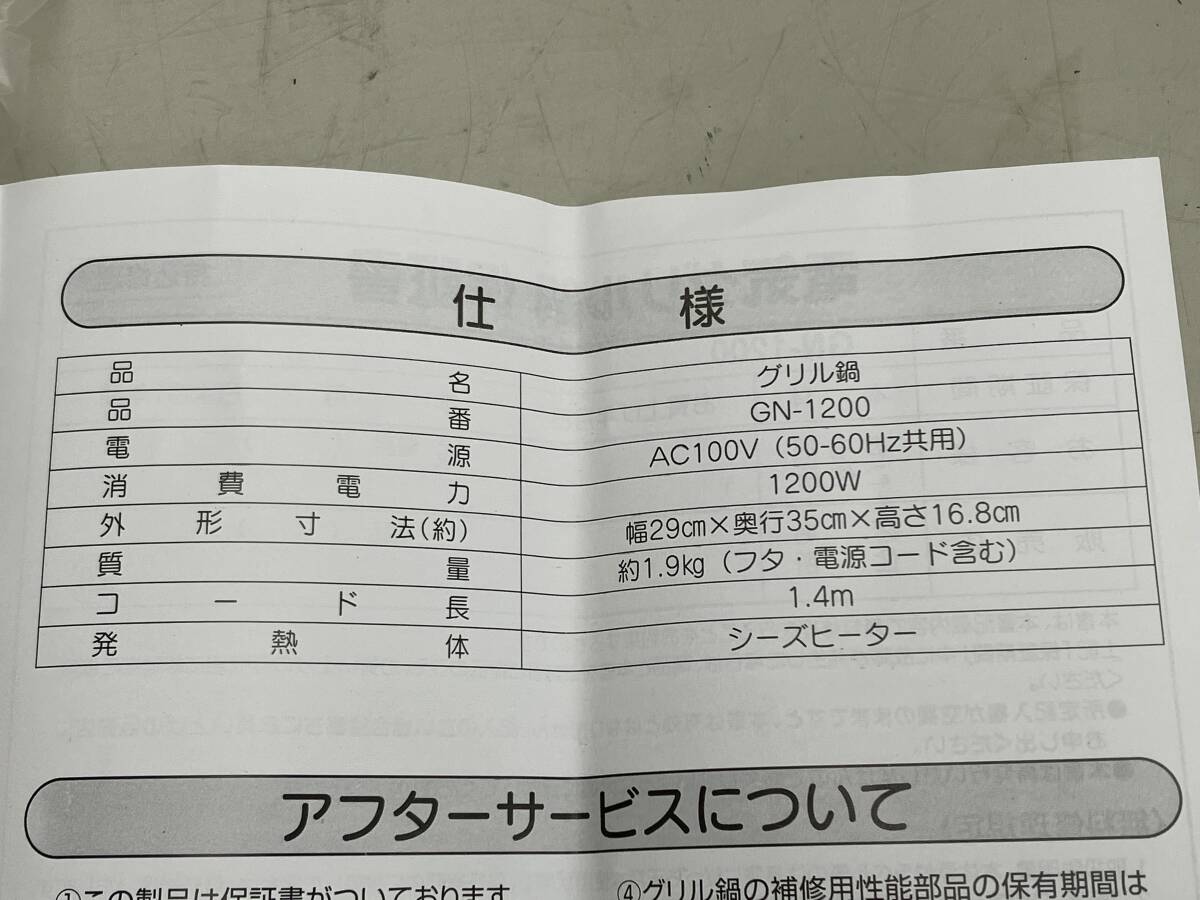 仕様
品名 グリル鍋
品番 GN-1200
電源 AC100V（50-60Hz共用）
消費電力 1200W
外形寸法(約) 幅29㎝×奥行35㎝×高さ16.8㎝
質量 約1.9㎏（フタ・電源コード含む）
コード長 1.4m
発熱体 シーズヒーター
アフターサービスについて
①この製品は保証書がついております
④グリル鍋の補修用性能部品の保有期間は